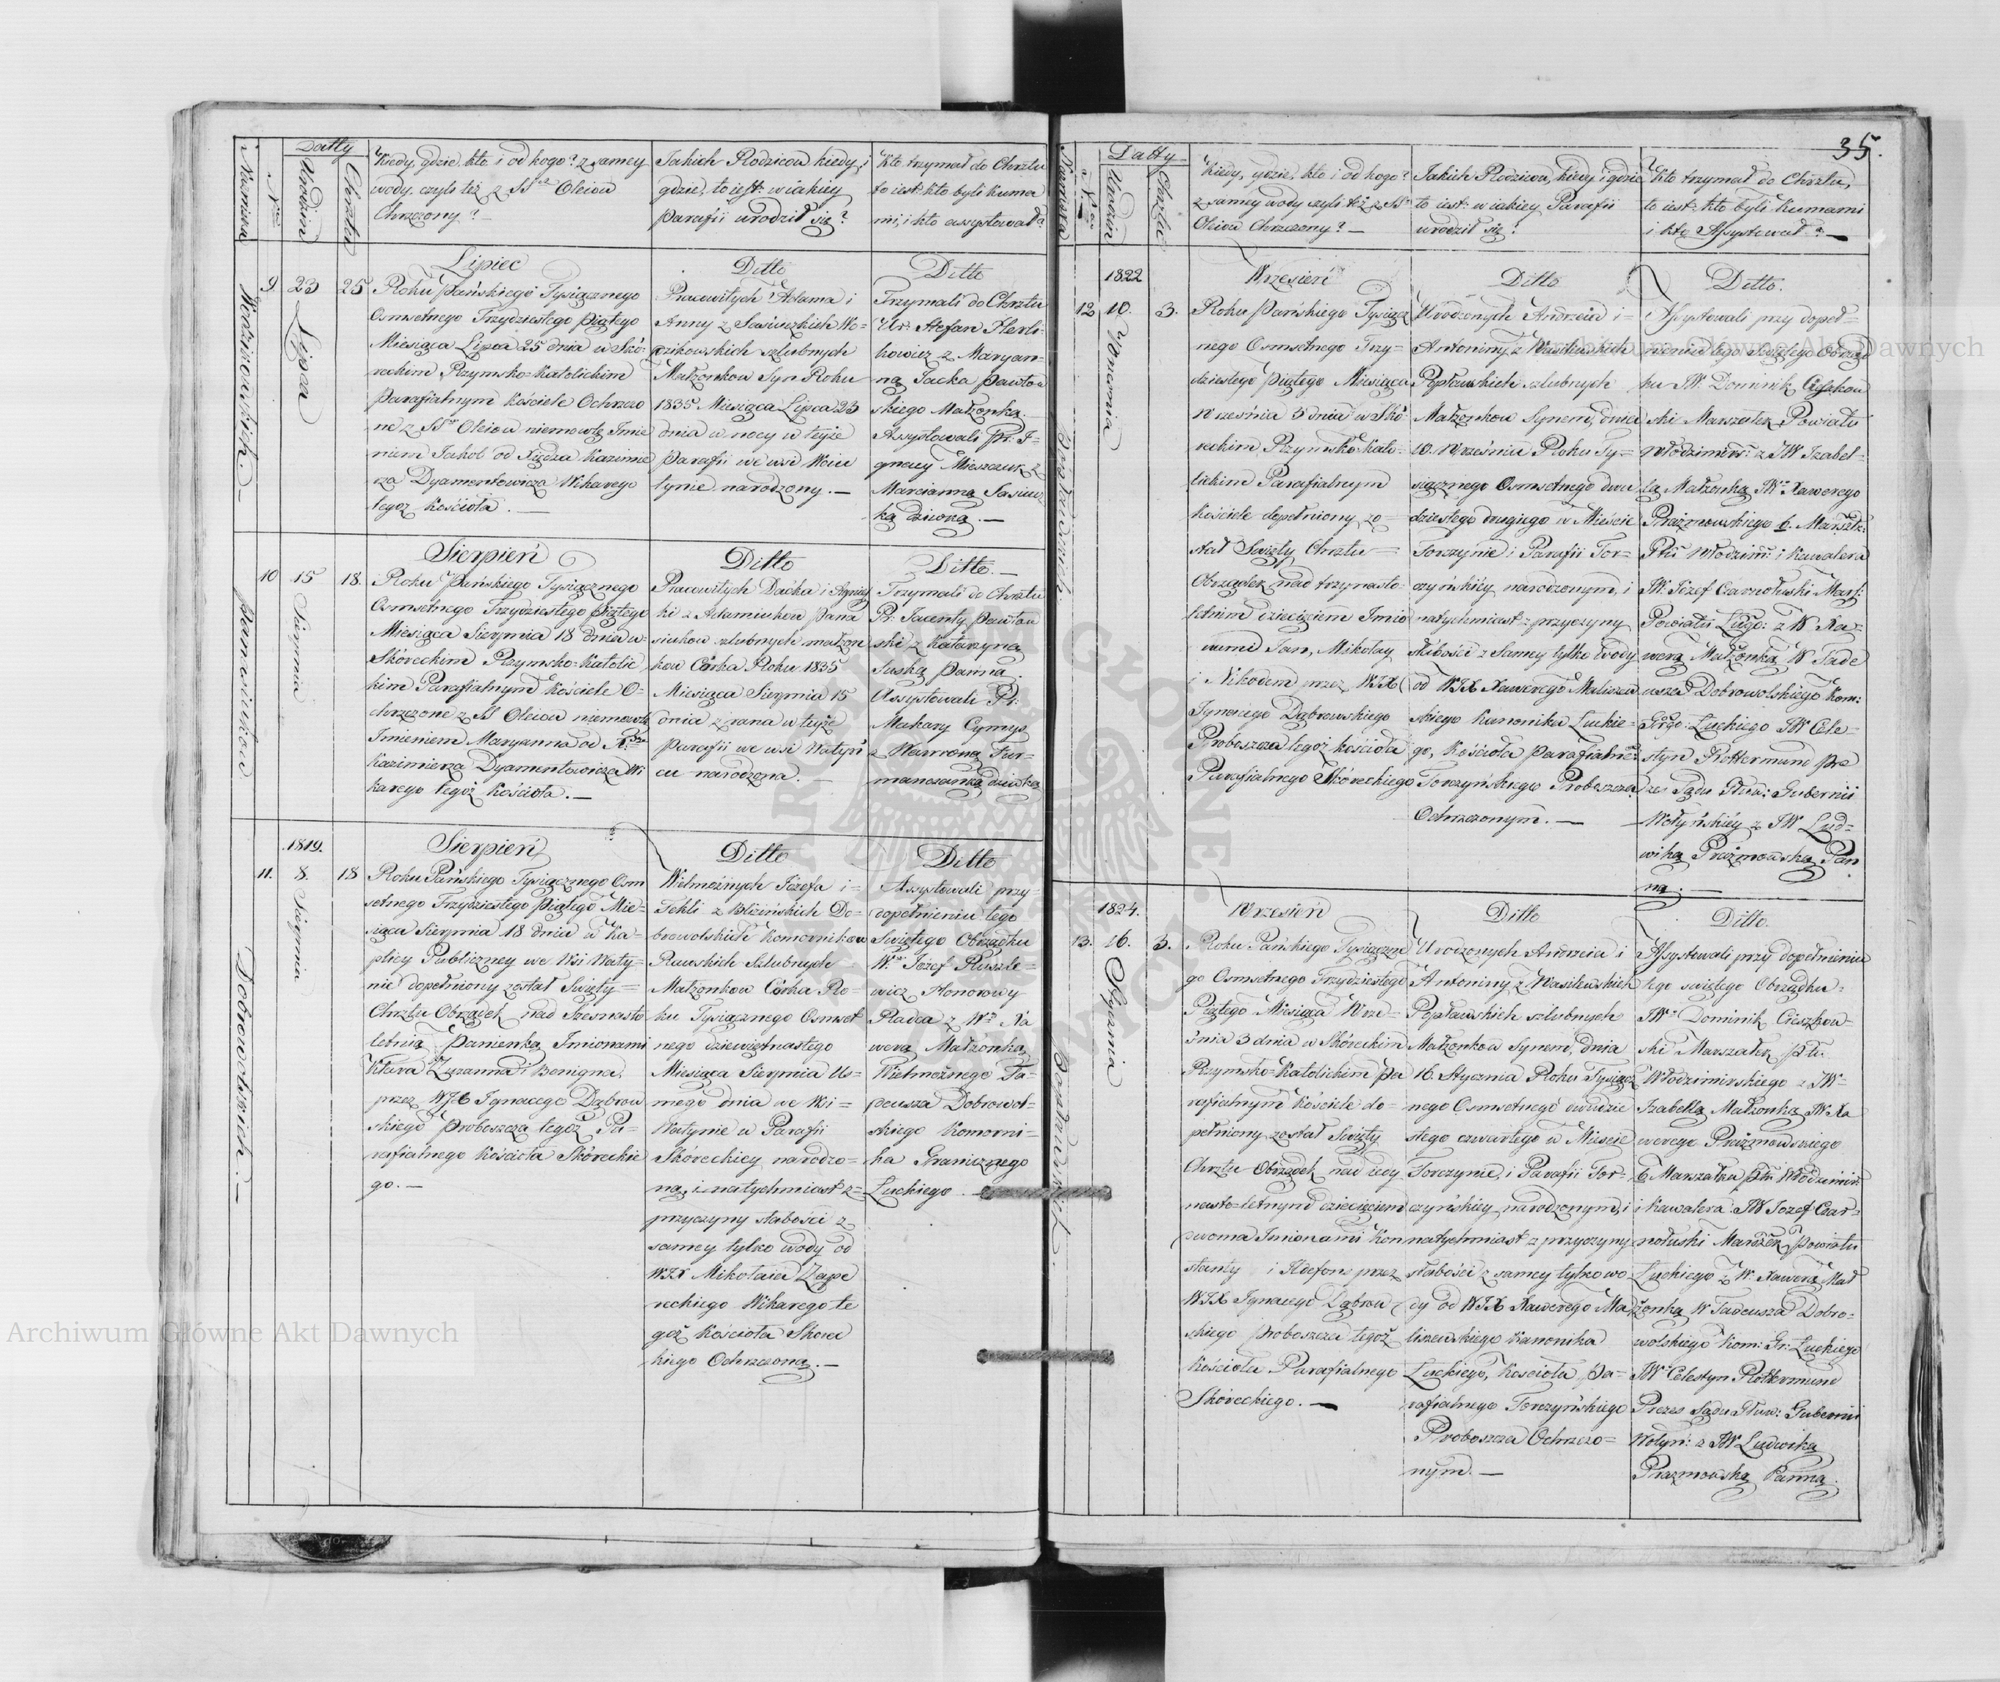 35.
Nazwiska
Nro
Datty
Urodzin
Chrztu
Kiedy, gdzie, kto i od kogo? z samey
wody, czyli też z SStt Oleiow
Chrzczony? —
Jakich Rodziców kiedy, i
gdzie, to iest: w iakiey
Parafii urodził się?
Kto trzymał do Chrztu
to iest: kto byli Kuma
mi, i kto assystował?
Modzikowskich. —
9
23
Lipca
25
Lipiec
Roku Pańskiego Tysiącznego
Osmsetnego Trzydziestego Piątego
Miesiąca Lipca 25 dnia w Skó-
reckim Rzymsko-Katolickim
Parafialnym Kościele Ochrzczo
ne z SStt Oleiow niemowlę Imie
niem Jakob od Xiędza Kazimie
rza Dyamentowicza Wikarego
tegoż Kościoła. —
Ditto
Pracowitych Adama i
Anny z
szlubnych
Małżonkow Syn Roku
1835 Miesiąca Lipca 23
dnia w nocy w teyże
Parafii we wsi Woiu
tynie narodzony. —
Ditto
Trzymali do Chrztu
Ur: Stefan Herb-
kowicz z Maryan-
ną Jacka Pawłow
skiego Małżonką.
Assystowali Pr: I-
gnacy Mieszczuk z
Marcianną
ką Dziewką. —
10
15
Sierpnia
18.
Sierpień
Roku Pańskiego Tysiącznego
Osmsetnego Trzydziestego Piątego
Miesiąca Sierpnia 18 dnia w
Skóreckim Rzymsko-Katolic
kim Parafialnym Kościele O-
chrzczone z SS Oleiow niemowlę
Imieniem Maryanna od X
Kazimierza Dyamentowicza Wi
karego tegoż Kościoła. —
Ditto
Pracowitych Daćka i Agniesz
ki z Adamiukow Pana
siukow szlubnych małżon
kow Córka Roku 1835
Miesiąca Sierpnia 15
dnia z rana w teyże
Parafii we wsi Watyń
cu narodzona. —
Ditto. —
Trzymali do Chrztu
Pr: Jacenty Pawłow
ski z Katarzyną
Saską Panną.
Assystowali Pr:
Makary Cymys
z Hawroną Fur-
manczanką dziewką
Panasiukow
11.
1819.
8.
Sierpnia
18
Sierpień
Roku Pańskiego Tysiącznego Osm
setnego Trzydziestego Piątego Mie-
siąca Sierpnia 18 Dnia w Ka-
plicy Publiczney we Wsi Waty-
nie dopełniony został Swięty
Chrztu Obrządek nad Szesnasto
letnią Panienką Imionami
Klara Zuzanna i Benigna,
przez WJX Ignacego Dąbrow
skiego Proboszcza tegoż Pa-
rafialnego Kościoła Skóreckie
go. —
Ditto
Wielmożnych Józefa i
Tekli z Blizińskich Do-
browolskich Komornikow
Rawskich Szlubnych
Małżonkow Córka Ro-
ku Tysiącznego Osmset
nego dziewiętnastego
Miesiąca Sierpnia Us-
mego dnia we Wsi
Watynie w Parafii
Skóreckiey narodzo-
na, i natychmiast z
przyczyny słabości z
samey tylko wody od
WJX Mikołaia Zape
reckiego Wikarego te
goż Kościoła Skorec
kiego Ochrzczona. —
Ditto
Assystowali przy
dopełnieniu tego
Swiętego Obrządku
W. Jozef Ruszle-
wicz Honorowy
Radca z Wą Xa
werą Małżonką
Wielmożnego Ta-
deusza Dobrowol-
skiego Komorni-
ka Granicznego
Luckiego. —
Dobrowolskich. —
Nazwiska
Nro
Datty
Urodzin
Chrztu
Kiedy, gdzie, kto i od kogo?
z samey wody czyli też z SStt
Oleiow Chrzczony? —
Jakich Rodziców, kiedy i gdzie
to iest: w iakiey Parafii
urodził się?
Kto trzymał do Chrztu,
to iest: kto byli Kumami
i kto Assystował? —
12
1822
10.
3.
Wrzesień
Roku Pańskiego Tysiącz
nego Osmsetnego Trzy-
dziestego Piątego Miesiąca
Września 3 dnia w Skó-
reckim Rzymsko-Kato-
lickim Parafialnym
Kościele dopełniony zo-
stał Swięty Chrztu
Obrządek nad trzynasto-
letnim dziecięciem Imio
nami Jan, Mikołay
i Nikodem przez WJX
Ignacego Dąbrowskiego
Proboszcza tegoż Kościoła
Parafialnego Skóreckiego
Ditto
Urodzonych Andrzeia i
Antoniny z Wasilewskich
Popławskich szlubnych
Małżonkow Synem, dnia
10. Września Roku Ty-
siącznego Osmsetnego dwu
dziestego drugiego w Mieście
Torczynie i Parafii Tor-
czyńskiey narodzonym, i
natychmiast z przyczyny
słabości z Samey tylko Wody
od WJX Xawerego Maliszew
skiego Kanonika Luckie-
go, Kościoła Parafialnego
Torczyńskiego Proboszcza
Ochrzczonym. —
Ditto.
Assystowali przy dopeł-
nieniu tego Swiętego Obrząd
ku JW. Dominik Cieszkow
ski Marszałek Powiatu
Włodzimir: z JW Izabel-
lą Małżonką JW Xawerego
Prażmowskiego b. Marszał:
Ptu Włodzim: i Kawalera
JW. Józef Czarnołuski Marsz:
Powiatu Lucg: z W Xa-
werą Małżonką W Tade
usza Dobrowolskiego Kom:
Grgo: Luckiego JW Cele-
styn Rottermund Pre
zes Sądu Głów: Gubernii
Wołyńskiey z JW Lud-
wiką Prażmowską Pan
ną. —
13.
1824.
16.
Stycznia
3.
Wrzesień
Roku Pańskiego Tysiączne
go Osmsetnego Trzydziestego
Piątego Miesiąca Wrze-
śnia 3 dnia w Skóreckim
Rzymsko-Katolickim Pa
rafialnym Kościele do-
pełniony został Swięty
Chrztu Obrządek nad iedy
nasto-letnym dziecięciem
dwoma Imionami Kon
stanty i Ildefons przez
WJX Ignacego Dąbrow
skiego Proboszcza tegoż
Kościoła Parafialnego
Skóreckiego. —
Ditto
Urodzonych Andrzeia i
Antoniny z Wasilewskich
Popławskich szlubnych
Małżonkow Synem, dnia
16. Stycznia Roku Tysiącz
nego Osmsetnego dwudzie
stego czwartego w Mieście
Torczynie, i Parafii Tor-
czyńskiey narodzonym, i
natychmiast z przyczyny
słabości z samey tylko wo
dy od WJX Xawerego Ma
liszewskiego Kanonika
Luckiego, Kościoła Pa-
rafialnego Torczyńskiego
Proboszcza Ochrzczo-
nym. —
Ditto.
Assystowali przy dopełnieniu
tego swiętego Obrządku
JW. Dominik Cieszkow-
ski Marszałek Ptu
Włodzimirskiego z JW
Izabellą Małżonką JW Xa
werego Prażmowskiego
b. Marszałka Ptu Włodzimir:
i Kawalera JW Jozef Czar-
nołuski Marszłk Powiatu
Luckiego z W. Xawerą Mał
żonką W Tadeusza Dobro-
wolskiego Kom: Gr: Luckiego
JW Celestyn Rottermund
Prezes Sądu Głów: Gubernii
Wołyń: z JW Ludwiką
Prazmowską Panną.
Archiwum Główne Akt Dawnych
Archiwum Główne Akt Dawnych